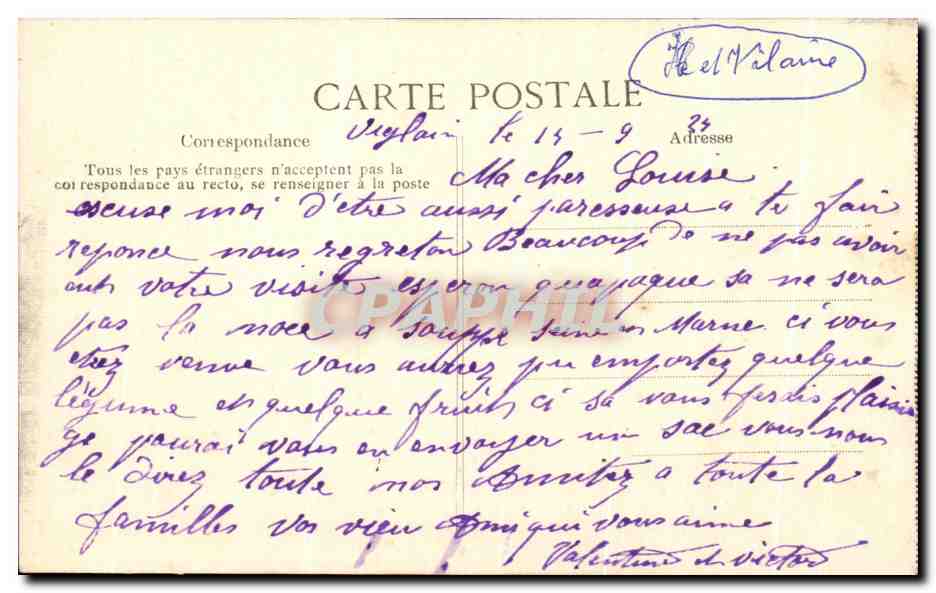 Ile et Vilaine
CARTE POSTALE
Correspondance
Viglain le 14 - 9 24
Adresse
Tous les pays étrangers n'acceptent pas la
correspondance au recto, se renseigner à la poste
Ma cher Louise
escuse moi d'etre aussi paresseuse a te fair
reponce nous regreton Beaucoup de ne pas avoir
votre visite esperon qua paque sa ne sera
pas la noce a Souppe Seine Marne ci vous
etiez venue vous auriez pu emportez quelque
légume et quelque fruit ci sa vous ferais plaisir
ge pourai vous en envoyer un sac vous nous
le direz toute nos Amitez a toute la
familles vos vieu Ami qui vous aime
Valentine et victor
CPAPHIL